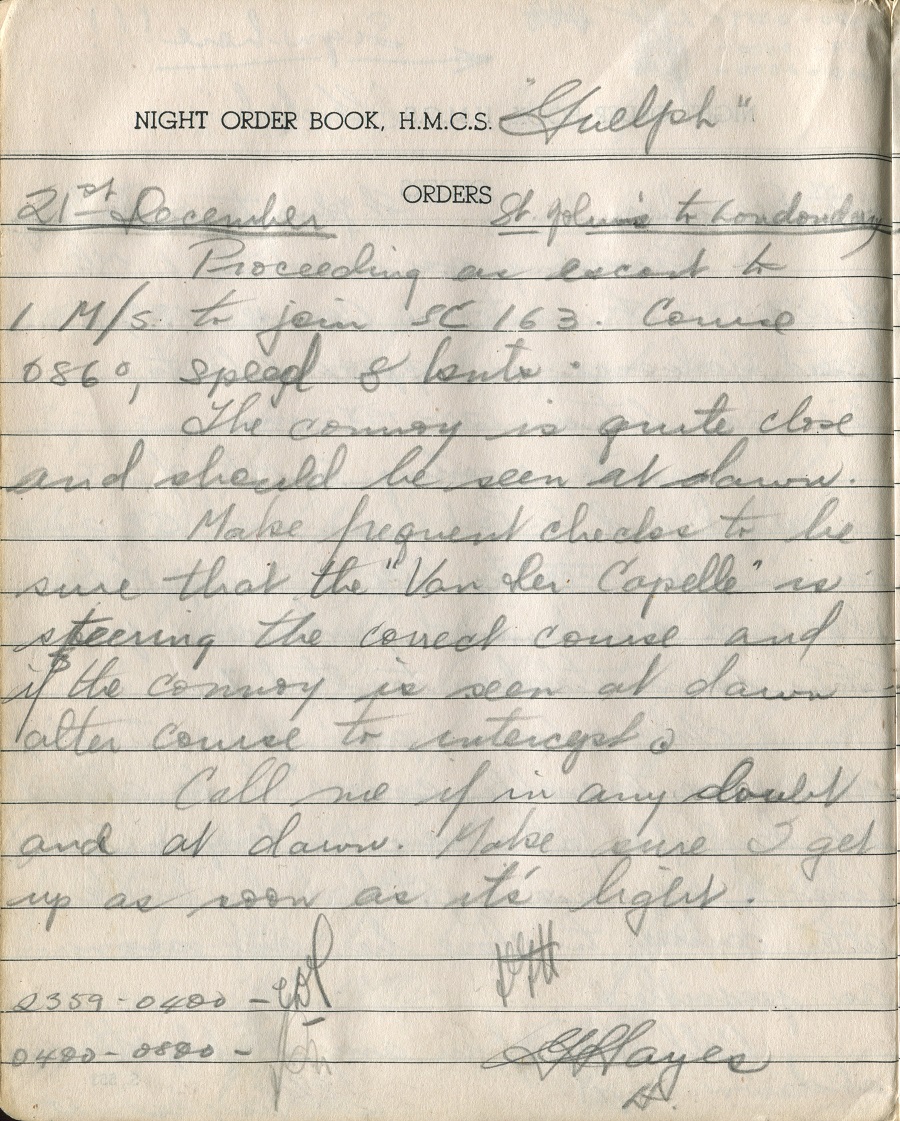 NIGHT ORDER BOOK, H.M.C.S. "Guelph"
ORDERS
21st December St. John's to Londonderry
Proceeding as escort to
1 M/S to join SC 163. Course
086°, speed 8 knots.
The convoy is quite close
and should be seen at dawn.
Make frequent checks to be
sure that the "Van der Capelle" is
steering the correct course and
if the convoy is seen at dawn
alter course to intercept.
Call me if in any doubt
and at dawn. Make sure I get
up as soon as it's light.
2359-0400 -
0400-0800 -
Hayes